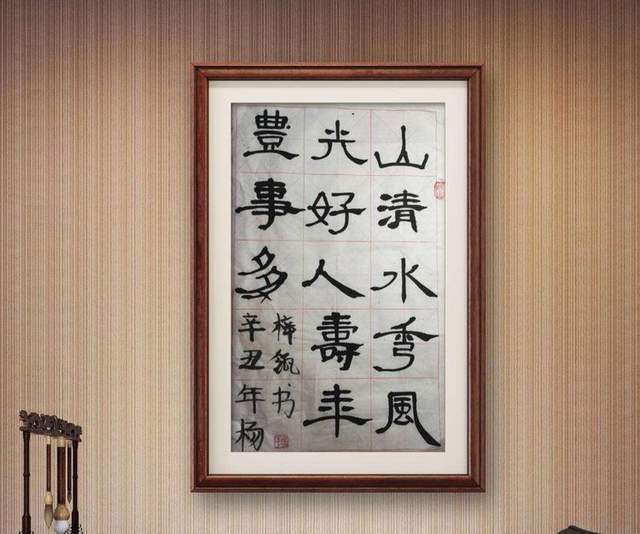 山清水秀風
光好人壽年
豊事多
辛丑年杨
梓书